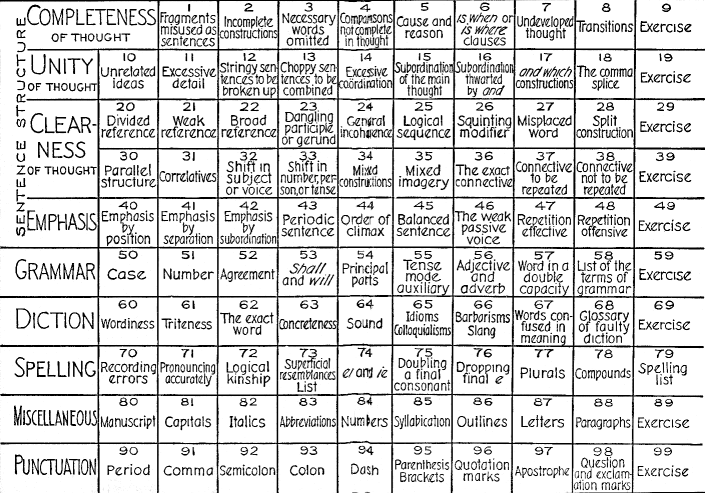 SENTENCE STRUCTURE
COMPLETENESS OF THOUGHT
1 Fragments misused as sentences
2 Incomplete constructions
3 Necessary words omitted
4 Comparisons not complete in thought
5 Cause and reason
6 is when or is where clauses
7 Undeveloped thought
8 Transitions
9 Exercise
UNITY OF THOUGHT
10 Unrelated ideas
11 Excessive detail
12 Stringy sentences to be broken up
13 Choppy sentences to be combined
14 Excessive coördination
15 Subordination of the main thought
16 Subordination thwarted by and
17 and which constructions
18 The comma splice
19 Exercise
CLEARNESS OF THOUGHT
20 Divided reference
21 Weak reference
22 Broad reference
23 Dangling participle or gerund
24 General incoherence
25 Logical sequence
26 Squinting modifier
27 Misplaced word
28 Split construction
29 Exercise
30 Parallel structure
31 Correlatives
32 Shift in subject or voice
33 Shift in number, person, or tense
34 Mixed constructions
35 Mixed imagery
36 The exact connective
37 Connective to be repeated
38 Connective not to be repeated
39 Exercise
EMPHASIS
40 Emphasis by position
41 Emphasis by separation
42 Emphasis by subordination
43 Periodic sentence
44 Order of climax
45 Balanced sentence
46 The weak passive voice
47 Repetition effective
48 Repetition offensive
49 Exercise
GRAMMAR
50 Case
51 Number
52 Agreement
53 Shall and will
54 Principal parts
55 Tense mode auxiliary
56 Adjective and adverb
57 Word in a double capacity
58 List of the terms of grammar
59 Exercise
DICTION
60 Wordiness
61 Triteness
62 The exact word
63 Concreteness
64 Sound
65 Idioms Colloquialisms
66 Barbarisms Slang
67 Words confused in meaning
68 Glossary of faulty diction
69 Exercise
SPELLING
70 Recording errors
71 Pronouncing accurately
72 Logical kinship
73 Superficial resemblances List
74 ei and ie
75 Doubling a final consonant
76 Dropping final e
77 Plurals
78 Compounds
79 Spelling list
MISCELLANEOUS
80 Manuscript
81 Capitals
82 Italics
83 Abbreviations
84 Numbers
85 Syllabication
86 Outlines
87 Letters
88 Paragraphs
89 Exercise
PUNCTUATION
90 Period
91 Comma
92 Semicolon
93 Colon
94 Dash
95 Parenthesis Brackets
96 Quotation marks
97 Apostrophe
98 Question and exclamation marks
99 Exercise